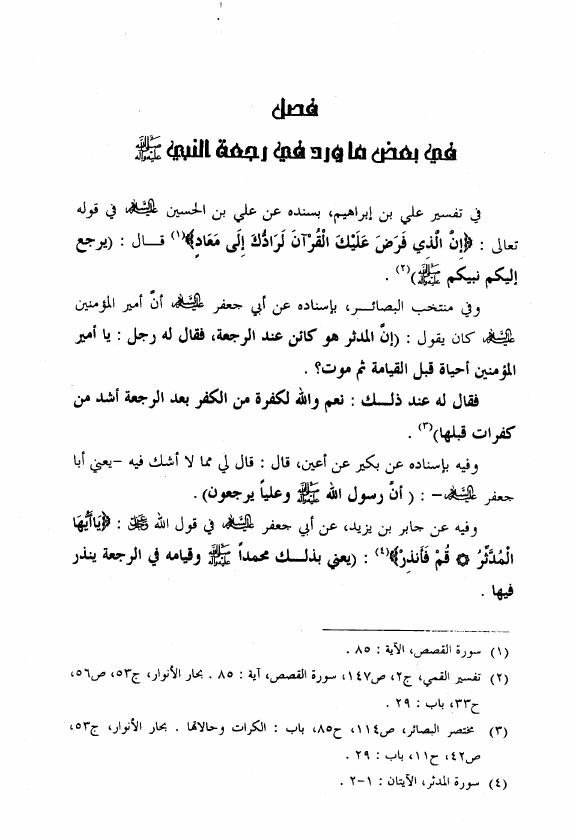 فصل
في بعض ما ورد في رجعة النبي ﷺ
في تفسير علي بن إبراهيم، بسنده عن علي بن الحسين عليه السلام في قوله
تعالى : ﴿إِنَّ الَّذِي فَرَضَ عَلَيْكَ الْقُرْآنَ لَرَادُّكَ إِلَى مَعَادٍ﴾(١) قال : (يرجع
إليكم نبيكم ﷺ)(٢) .
وفي منتخب البصائر، بإسناده عن أبي جعفر عليه السلام أنَّ أمير المؤمنين
عليه السلام كان يقول : (إنَّ المدثر هو كائن عند الرجعة، فقال له رجل : يا أمير
المؤمنين أحياة قبل القيامة ثم موت؟ .
فقال له عند ذلك : نعم والله لكفرة من الكفر بعد الرجعة أشد من
كفرات قبلها)(٣) .
وفيه بإسناده عن بكير عن أعين، قال : قال لي مما لا أشك فيه -يعني أبا
جعفر عليه السلام- : ( أنَّ رسول الله ﷺ وعلياً يرجعون) .
وفيه عن جابر بن يزيد، عن أبي جعفر عليه السلام في قول الله ﷻ : ﴿يَاأَيُّهَا
الْمُدَّثِّرُ ۞ قُمْ فَأَنذِرْ﴾(٤) : (يعني بذلك محمداً ﷺ وقيامه في الرجعة ينذر
فيها .
(١) سورة القصص، الآية : ٨٥ .
(٢) تفسير القمي، ج٢، ص١٤٧، سورة القصص، آية : ٨٥ . بحار الأنوار، ج٥٣، ص٥٦،
ح٣٣، باب : ٢٩ .
(٣) مختصر البصائر، ص١١٤، ح٨٥، باب : الكرات وحالاتها . بحار الأنوار، ج٥٣،
ص٤٢، ح١١، باب : ٢٩ .
(٤) سورة المدثر، الآيتان : ١-٢ .